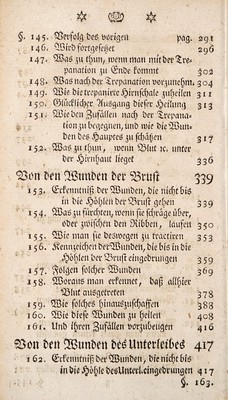 §. 145. Verfolg des vorigen pag. 291
146. Wird fortgesetzet 296
147. Was zu thun, wenn man mit der Tre-
panation zu Ende kommt 302
148. Was nach der Trepanation vorzunehm. 304
149. Wie die trepanirte Hirnschale zuheilen 311
150. Glücklicher Ausgang dieser Heilung 313
151. Wie den Zufällen nach der Trepana-
tion zu begegnen, und wie die Wun-
den des Hauptes zu schäzen 317
152. Was zu thun, wenn Blut ꝛc. unter
der Hornhaut lieget 336
Von den Wunden der Brust 339
153. Erkenntniß der Wunden, die nicht bis
in die Höhlen der Brust gehen 339
154. Was zu fürchten, wenn sie schräge über,
oder zwischen den Ribben, laufen 350
155. Wie man sie deswegen zu tractiren 353
156. Kennzeichen der Wunden, die bis in die
Höhlen der Brust eingedrungen 359
157. Folgen solcher Wunden 369
158. Woraus man erkennet, daß allhier
Blut ausgetreten 378
159. Wie solches hinauszuschaffen 388
160. Wie diese Wunden zu heilen 408
161. Und ihren Zufällen vorzubeugen 416
Von den Wunden des Unterleibes 417
162. Erkenntniß der Wunden, die nicht bis
in die Höhle des Unterl. eingedrungen 417
§. 163.